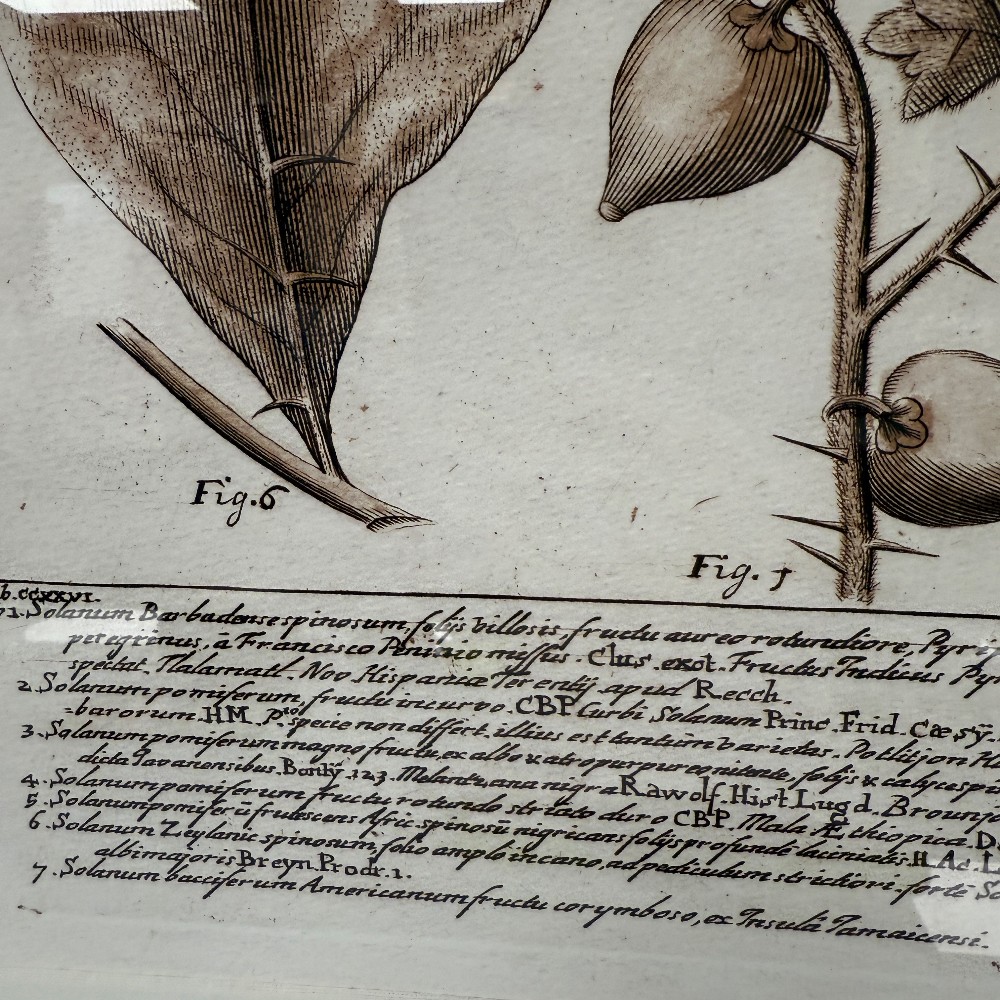 Fig.6
Fig. 1
b.ccxxvi.
1. Solanum Barbadense spinosum, folijs villosis, fructu aureo rotundiore, Pyri
peregrinus, à Francisco missus. Clus. exot. Fructus Indicus Pyr
spectat. Tlalamatl. Nov Hispaniæ Terentij apud Recch.
2. Solanum pomiferum, fructu incurvo. CBP. Curbi, Solanum Princ. Frid. Cæsÿ.
=barorum. HM. specie non differt, illius est tantum varietas.
3. Solanum pomiferum magno fructu, ex albo & atropurpureo nitente, folijs & calyce
dicta Javanensibus. Bontÿ. 123. Melantzana nigra Rawolf. Hist. Lugd.
4. Solanum pomiferum fructu rotundo striato duro CBP. Mala Æthiopica. D.
5. Solanum pomiferū frutescens Afric. spinosū nigricans folijs profundè laciniatis. H. Ac. L
6. Solanum Zeylanic spinosum, folio amplo incano, ad pediculum strictiori, fortè So
albi majoris Breyn. Prodr. 1.
7. Solanum bacciferum Americanum fructu corymboso, ex Insulâ Jamaicensi.